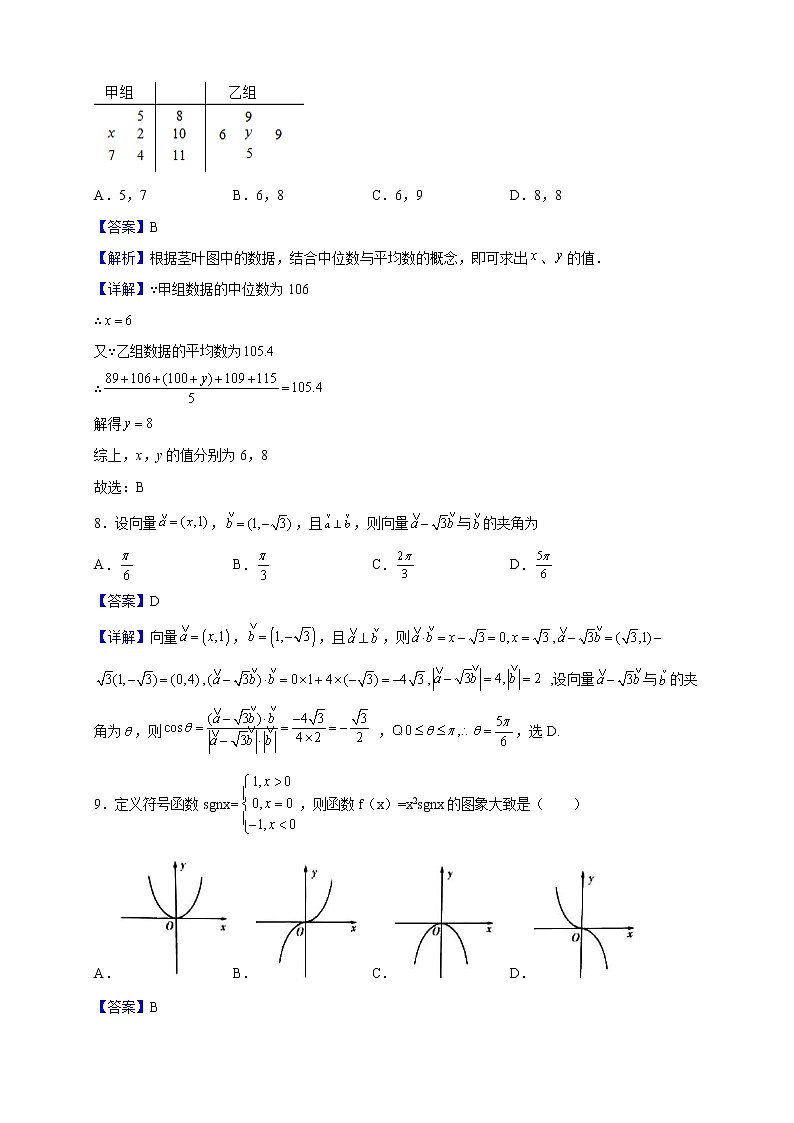 甲组 乙组
5 8 9
x 2 10 6 y 9
7 4 11 5
A．5，7 B．6，8 C．6，9 D．8，8
【答案】B
【解析】根据茎叶图中的数据，结合中位数与平均数的概念，即可求出 x 、 y 的值．
【详解】∵甲组数据的中位数为 106
∴ x = 6
又∵乙组数据的平均数为 105.4
∴ (89+106+(100+y)+109+115)/5 = 105.4
解得 y = 8
综上，x，y 的值分别为 6，8
故选：B
8．设向量 a = (x,1) ， b = (1,−√3) ，且 a ⊥ b ，则向量 a − √3b 与 b 的夹角为
A． π/6 B． π/3 C． 2π/3 D． 5π/6
【答案】D
【详解】向量 a = (x,1) ， b = (1,−√3) ，且 a ⊥ b ，则 a·b = x − √3 = 0, x = √3 , a − √3b = (√3,1)−
√3(1,−√3) = (0,4) ,(a − √3b)·b = 0×1+4×(−√3) = −4√3 , |a − √3b| = 4, |b| = 2 ,设向量 a − √3b 与 b 的夹
角为 θ ，则 cosθ = (a − √3b)·b / |a − √3b|·|b| = −4√3 / 4×2 = − √3/2 ，Q 0 ≤ θ ≤ π ,∴ θ = 5π/6 ，选 D.
9．定义符号函数 sgnx= { 1, x > 0
0, x = 0 ，则函数 f（x）=x²sgnx 的图象大致是（ ）
−1, x < 0
y y y y
O x O x O x O x
A． B． C． D．
【答案】B